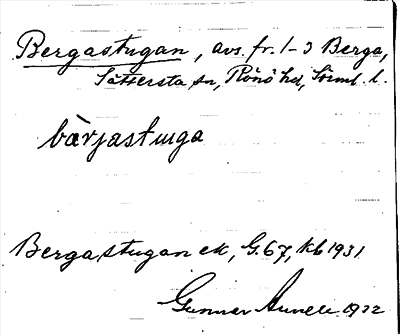 Bergastugan, avs. fr. 1-3 Berga,
Sättersta sn, Rönö hd, Sörml. l.
bàrjastuga
Bergastugan ek, G.67, kb 1931
Gunnar 1932